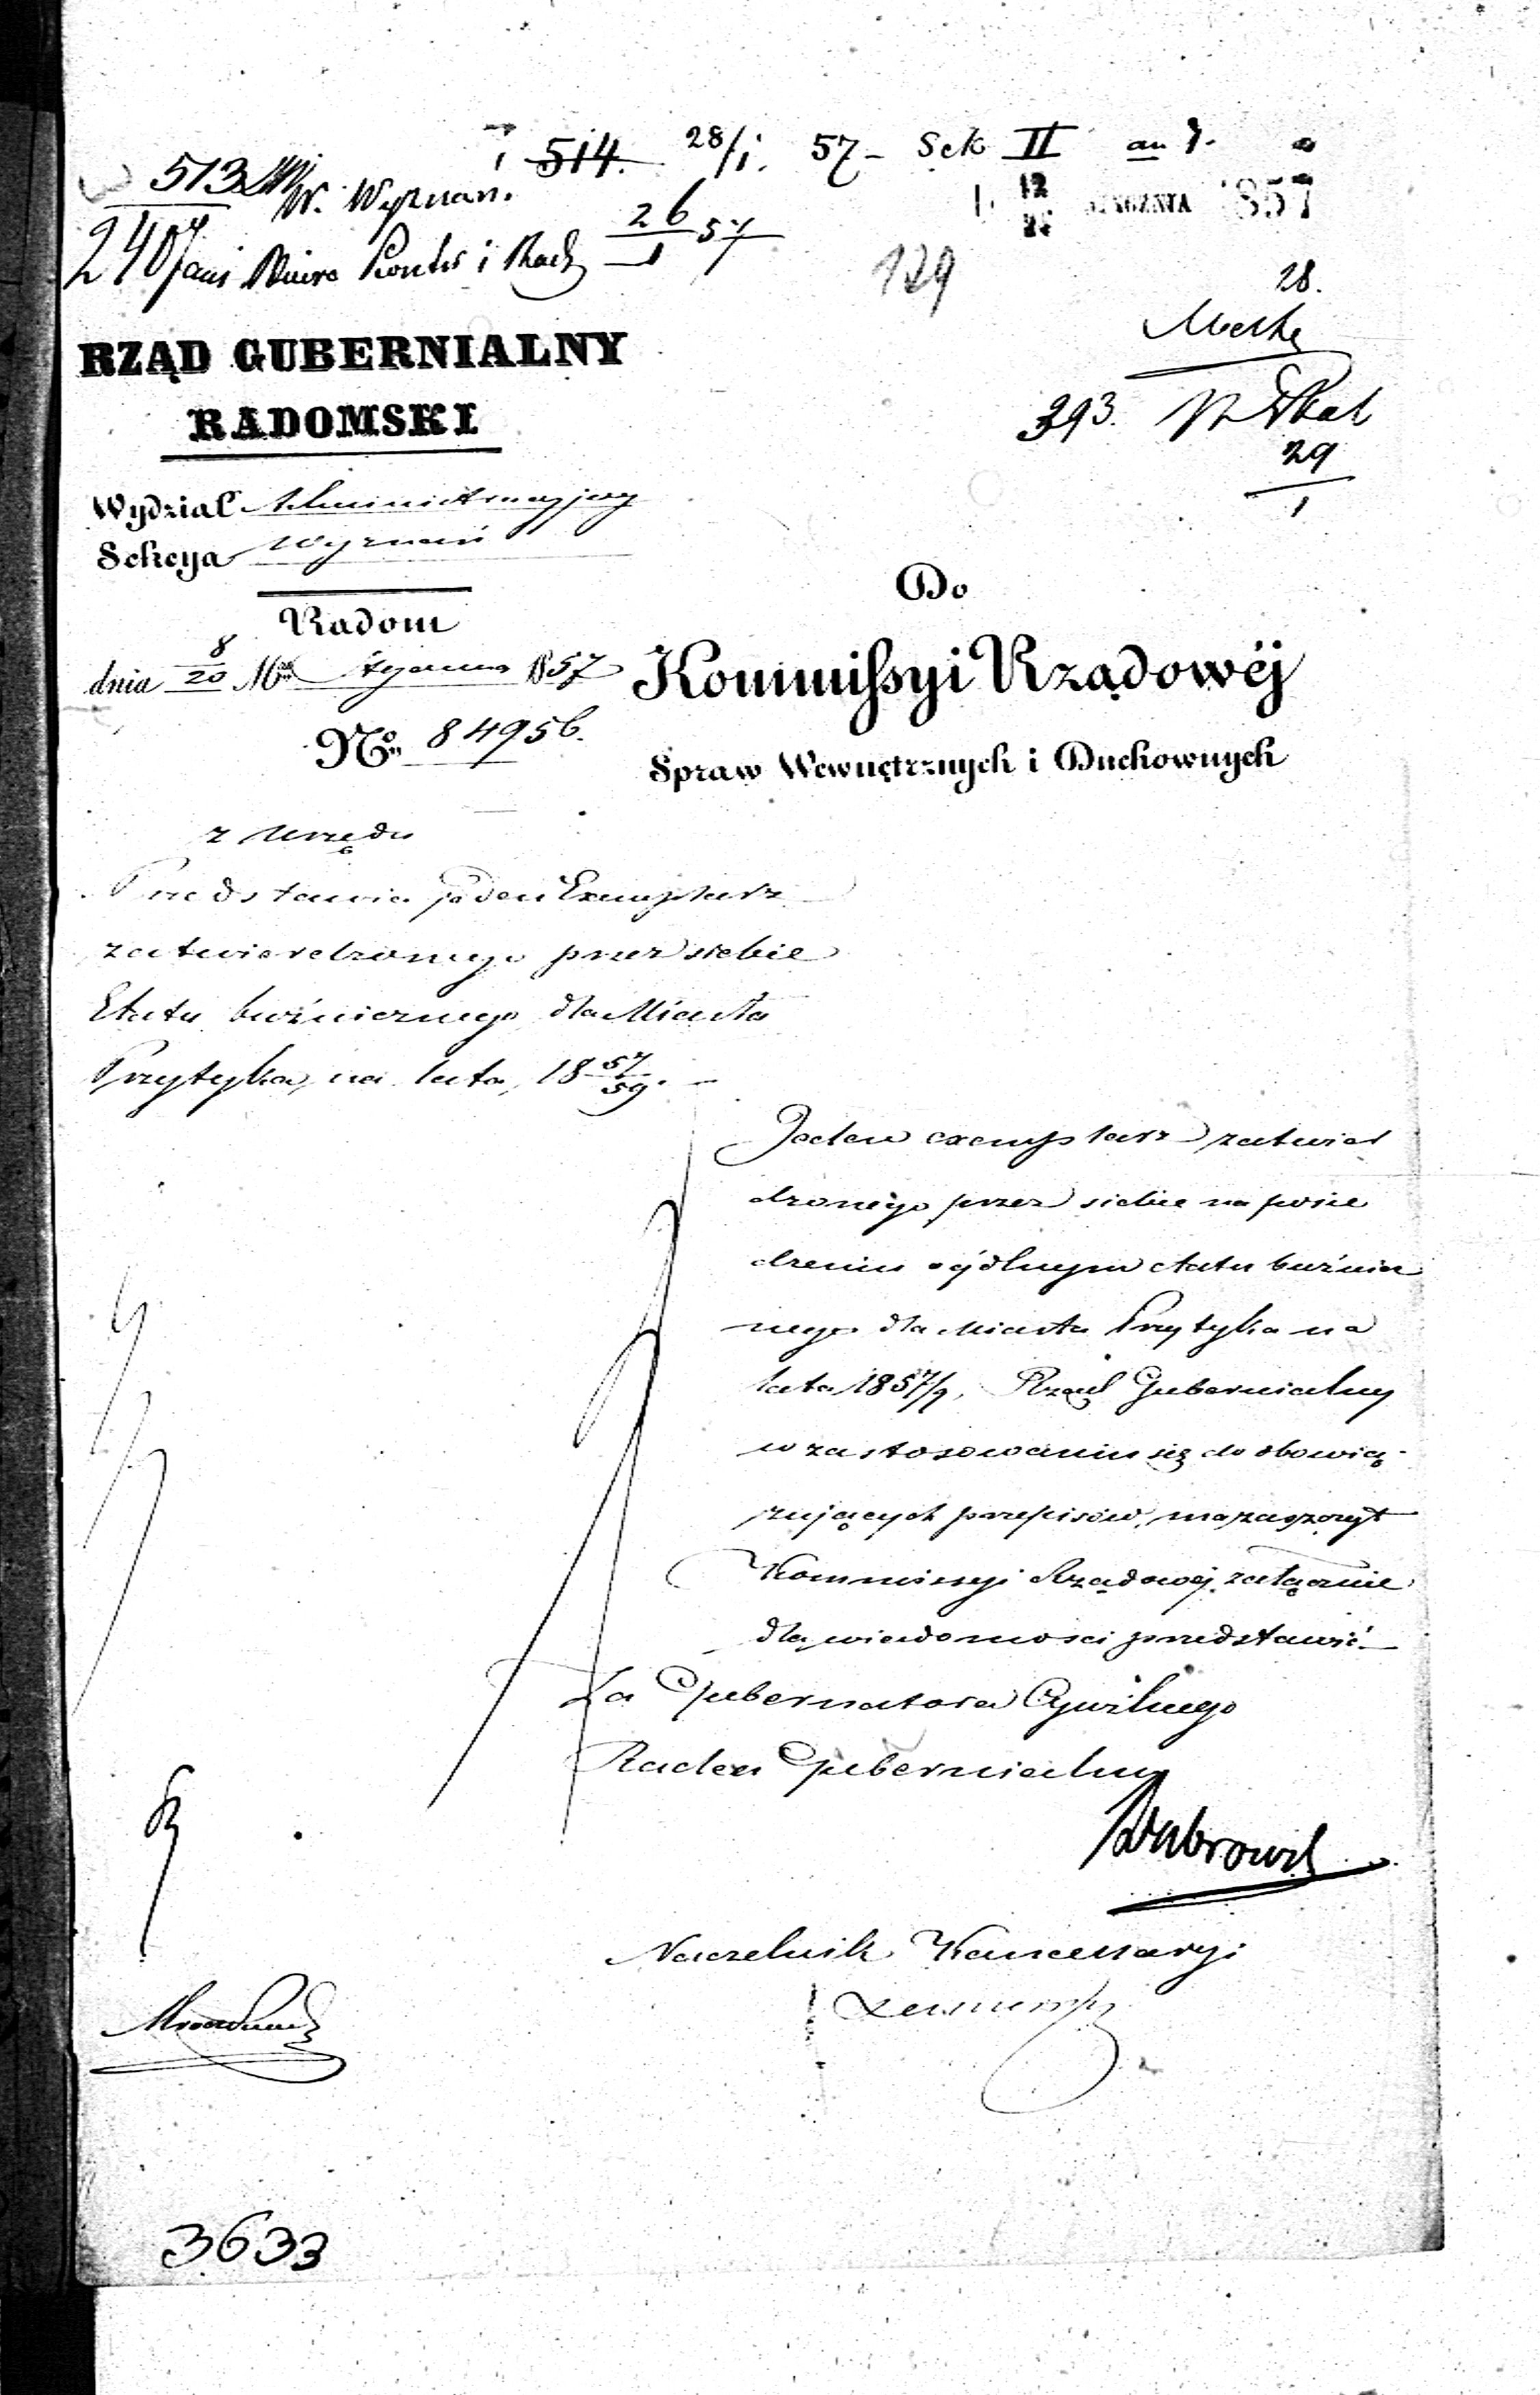 514. 28/1. 57 - Sek II
513 W. Wyznań.
12 STYCZNIA 1857
26/1 57
129
28.
393.
29/1
RZĄD GUBERNIALNY
RADOMSKI
Wydział Administracyjny
Sekcya Wyznań
Radom
dnia 8/20 Mca Stycznia 1857
No. 84956.
Do
Kommissyi Rządowéj
Spraw Wewnętrznych i Duchownych
z Urzędu
Przedstawia jeden Exemplarz
zatwierdzonego przez siebie
Etatu bużnicznego dla Miasta
Przytyka, na lata, 18 57/59. -
Jeden exemplarz zatwier
dzonego przez siebie na posie
dzeniu ogólnym etatu bużnicz
nego dla Miasta Przytyka na
lata 1857/9, Rząd Gubernialny
w zastosowaniu się do obowią-
zujących przepisów, ma zaszczyt
Kommissyi Rządowej załącznie
dla wiadomosci przedstawić
Za Gubernatora Cywilnego
Radca Gubernialny
Naczelnik Kancellaryi
3633